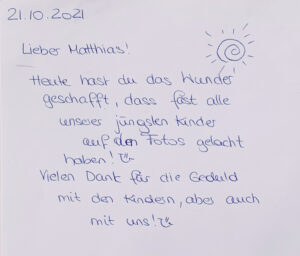 21.10.2021
Lieber Matthias!
Heute hast du das Wunder
geschafft, dass fast alle
unserer jüngsten Kinder
auf den Fotos gelacht
haben!
Vielen Dank für die Geduld
mit den Kindern, aber auch
mit uns!